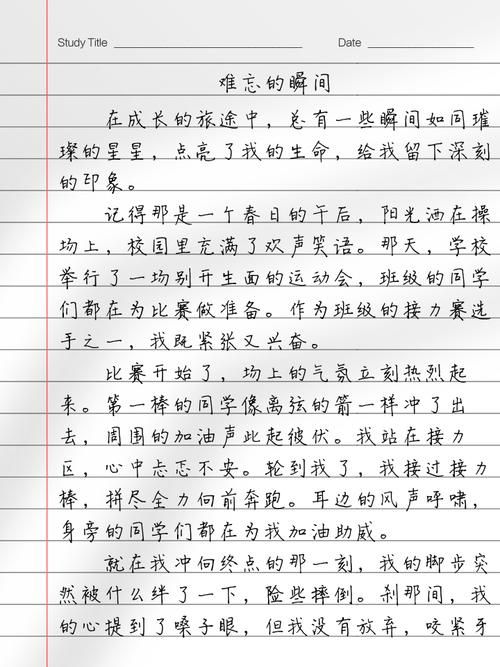 Study Title Date
难忘的瞬间
在成长的旅途中，总有一些瞬间如同璀
璨的星星，点亮了我的生命，给我留下深刻
的印象。
记得那是一个春日的午后，阳光洒在操
场上，校园里充满了欢声笑语。那天，学校
举行了一场别开生面的运动会，班级的同学
们都在为比赛做准备。作为班级的接力赛选
手之一，我既紧张又兴奋。
比赛开始了，场上的气氛立刻热烈起
来。第一棒的同学像离弦的箭一样冲了出
去，周围的加油声此起彼伏。我站在接力
区，心中忐忑不安。轮到我了，我接过接力
棒，拼尽全力向前奔跑。耳边的风声呼啸，
身旁的同学们都在为我加油助威。
就在我冲向终点的那一刻，我的脚步突
然被什么绊了一下，险些摔倒。刹那间，我
的心提到了嗓子眼，但我没有放弃，咬紧牙